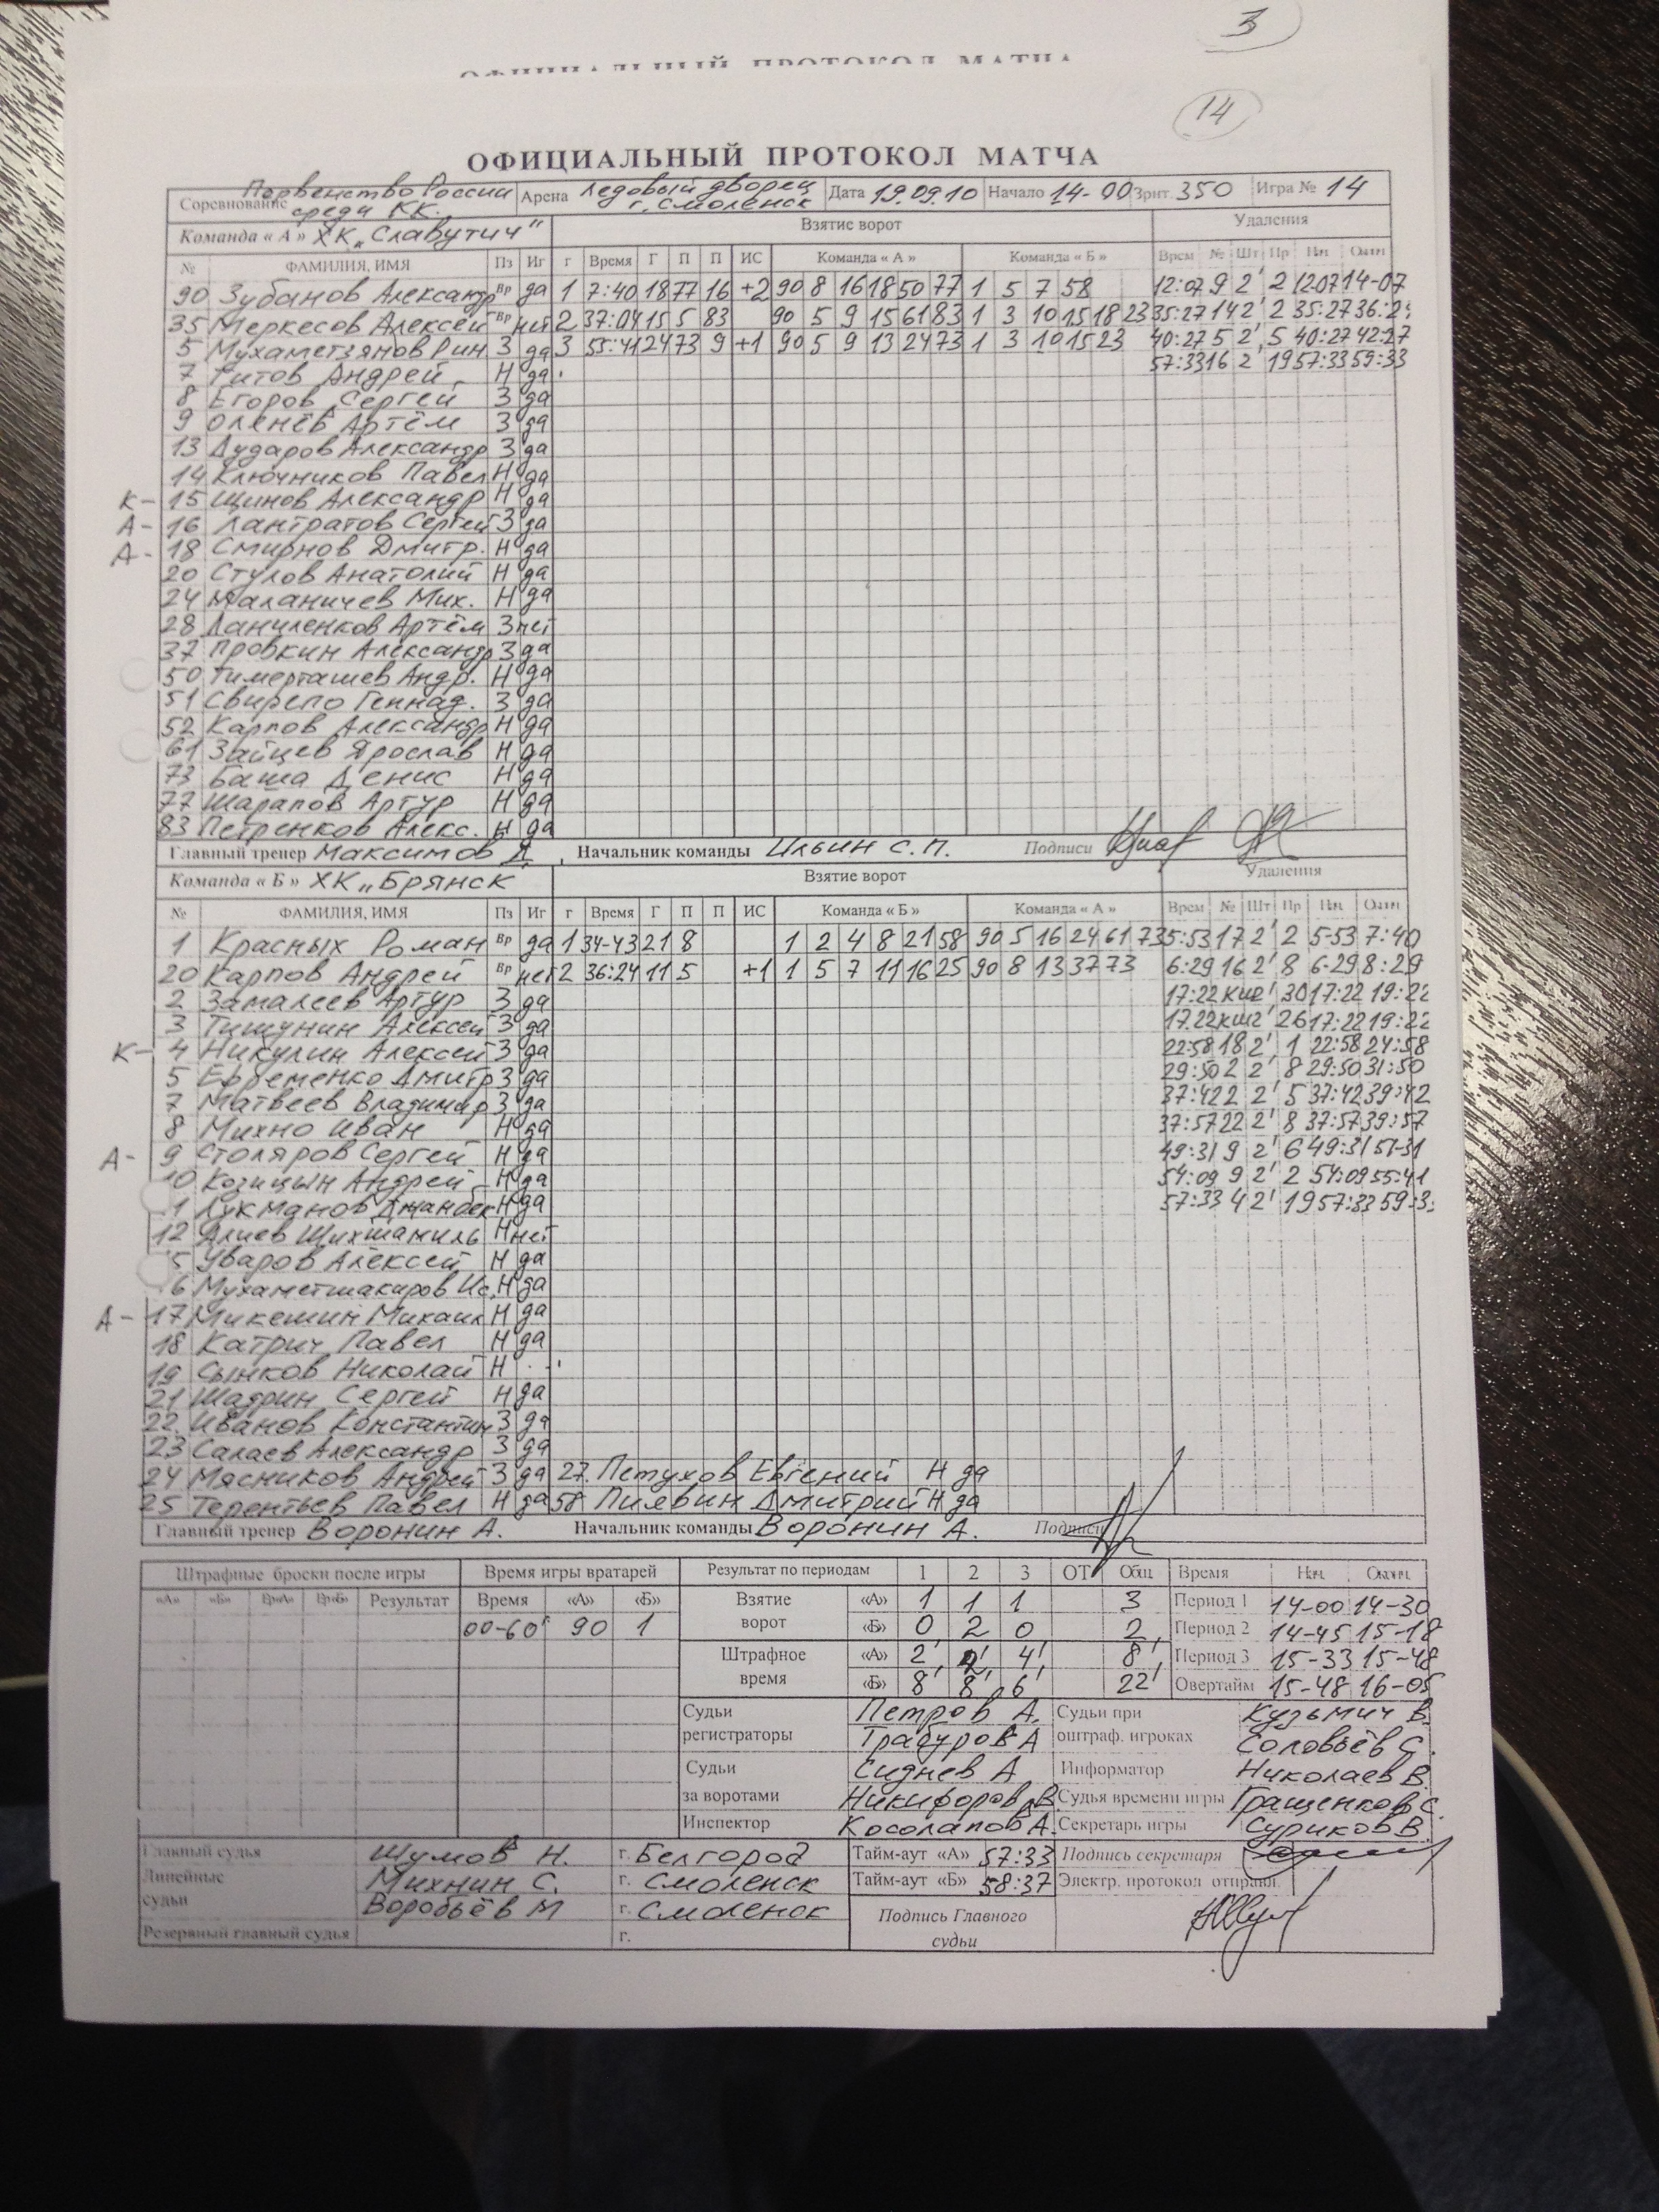 3
ОФИЦИАЛЬНЫЙ ПРОТОКОЛ МАТЧА
14
ОФИЦИАЛЬНЫЙ ПРОТОКОЛ МАТЧА
Соревнование Первенство России среди КК. Арена Ледовый дворец г. Смоленск Дата 19.09.10 Начало 14-00 Зрит. 350 Игра № 14
Команда « А » ХК „Славутич" Взятие ворот Удаления
№ ФАМИЛИЯ, ИМЯ Пз Иг г Время Г П П ИС Команда « А » Команда « Б » Врем № Шт Пр Нач Оконч
90 Зубанов Александр Вр да 1 7:40 18 77 16 +2 90 8 16 18 50 77 1 5 7 58 12:07 9 2' 2 12:07 14-07
35 Меркесов Алексей Вр нет 2 37:04 15 5 83 90 5 9 15 61 83 1 3 10 15 18 23 35:27 14 2' 2 35:27 36:24
5 Мухаметзянов Рин З да 3 55:41 24 73 9 +1 90 5 9 13 24 73 1 3 10 15 23 40:27 5 2' 5 40:27 42:27
7 Титов Андрей Н да 57:33 16 2' 19 57:33 59:33
8 Егоров Сергей З да
9 Оленёв Артём З да
13 Дударов Александр З да
14 Ключников Павел Н да
К- 15 Щинов Александр Н да
А- 16 Лантратов Сергей З да
А- 18 Смирнов Дмитр. Н да
20 Стулов Анатолий Н да
24 Маланичев Мих. Н да
28 Даниленков Артём З нет
37 Провкин Александр З да
50 Тимерташев Андр. Н да
51 Свирепо Геннад. З да
52 Карпов Александр Н да
61 Зайцев Ярослав Н да
73 Баша Денис Н да
77 Шарапов Артур Н да
83 Петренков Алекс. Н да
Главный тренер Максимов Д. Начальник команды Ильин С.П. Подписи
Команда « Б » ХК „Брянск" Взятие ворот Удаления
№ ФАМИЛИЯ, ИМЯ Пз Иг г Время Г П П ИС Команда « Б » Команда « А » Врем № Шт Пр Нач Оконч
1 Красных Роман Вр да 1 34-43 21 8 1 2 4 8 21 58 90 5 16 24 61 73 5:53 17 2' 2 5-53 7:40
20 Карпов Андрей Вр нет 2 36:24 11 5 +1 1 5 7 11 16 25 90 8 13 37 73 6:29 16 2' 8 6-29 8:29
2 Замалеев Артур З да 17:22 кш 2' 30 17:22 19:22
3 Тишунин Алексей З да 17.22 кш 2' 26 17:22 19:22
К- 4 Никулин Алексей З да 22:58 18 2' 1 22:58 24:58
5 Ефременко Дмитр З да 29:50 2 2' 8 29:50 31:50
7 Матвеев Владимир З да 37:42 2 2' 5 37:42 39:42
8 Михно Иван Н да 37:57 22 2' 8 37:57 39:57
А- 9 Столяров Сергей Н да 49:31 9 2' 6 49:31 51-31
10 Козицын Андрей Н да 54:09 9 2' 2 54:09 55:41
1 Лукманов Джанбек Н да 57:33 4 2' 19 57:33 59:3
12 Алиев Шихшамиль Н нет
5 Уваров Алексей Н да
6 Мухаметшакиров Ис. Н да
А- 17 Микешин Михаил Н да
18 Катрич Павел Н да
19 Сынков Николай Н
21 Шадрин Сергей Н да
22. Иванов Константин З да
23 Салаев Александр З да
24 Мясников Андрей З да 27. Петухов Евгений Н да
25 Терентьев Павел Н да 58 Пиявин Дмитрий Н да
Главный тренер Воронин А. Начальник команды Воронин А. Подписи
Штрафные броски после игры Время игры вратарей Результат по периодам 1 2 3 ОТ Общ Время Нач. Оконч.
«А» «Б» Вр«А» Вр«Б» Результат Время «А» «Б» Взятие ворот «А» 1 1 1 3 Период 1 14-00 14-30
00-60' 90 1 «Б» 0 2 0 2 Период 2 14-45 15-18
Штрафное время «А» 2' 2' 4' 8' Период 3 15-33 15-48
«Б» 8' 8' 6' 22' Овертайм 15-48 16-05
Судьи регистраторы Петров А. Судьи при оштраф. игроках Кузьмич В.
Трабуров А Соловьёв С.
Судьи за воротами Сиднев А Информатор Николаев В.
Никифоров В. Судья времени игры Гращенков С.
Инспектор Косолапов А. Секретарь игры Суриков В.
Главный судья Шумов Н. г. Белгород Тайм-аут «А» 57:33 Подпись секретаря
Линейные судьи Михнин С. г. Смоленск Тайм-аут «Б» 58:37 Электр. протокол отправл.
Воробьёв М г. Смоленск Подпись Главного судьи
Резервный главный судья г.